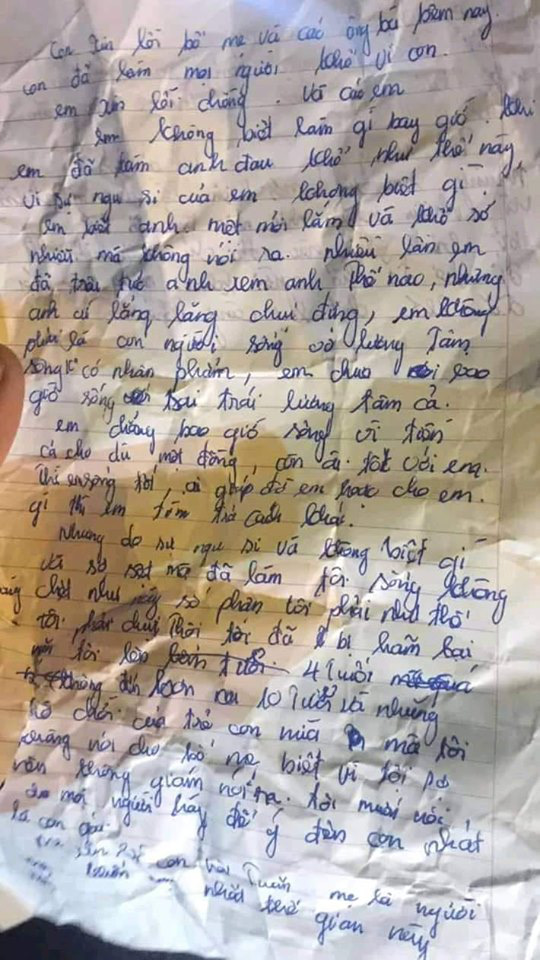 con xin lỗi bố mẹ và các ông bà hôm nay.
con đã làm mọi người khổ vì con.
em xin lỗi chồng. và các em
em không biết làm gì bay giờ. khi
em đã làm anh đau khổ như thế này,
vì sự ngu si của em. không biết gì.
em biết anh mệt mỏi lắm và khổ sở
nhiều mà không nói ra. nhiều lần em
đã anh xem anh thế nào, nhưng
anh cứ lẳng lặng chụi đứng, em không
phải là con người sống vô lương Tâm
sống k có nhân phẩm, em chưa bao
giờ sống trái lương tâm cả.
em chẳng bao giờ sống vì tiền
cả cho dù một đồng, còn ai tốt với em.
thì em sống tốt, ai giúp đỡ em hoặc cho em.
gì thì em tìm trả cách khác.
Nhưng do sự ngu si và không biết gì
và sợ sệt mà đã làm tôi sống không
chết như này số phận tôi phải như thế
tôi phải chụi Thôi tôi đã bị hãm hại
tôi lên 4 Tuổi
không đến hơn 10 Tuổi và những
trò chơi của trẻ con nữa mà tôi
không nói cho bố mẹ biết vì tôi
vẫn không giám nói ra. tôi muốn nói,
mọi người hãy để ý đến con nhất
là con gái.
con mẹ là người
nhất thế gian này